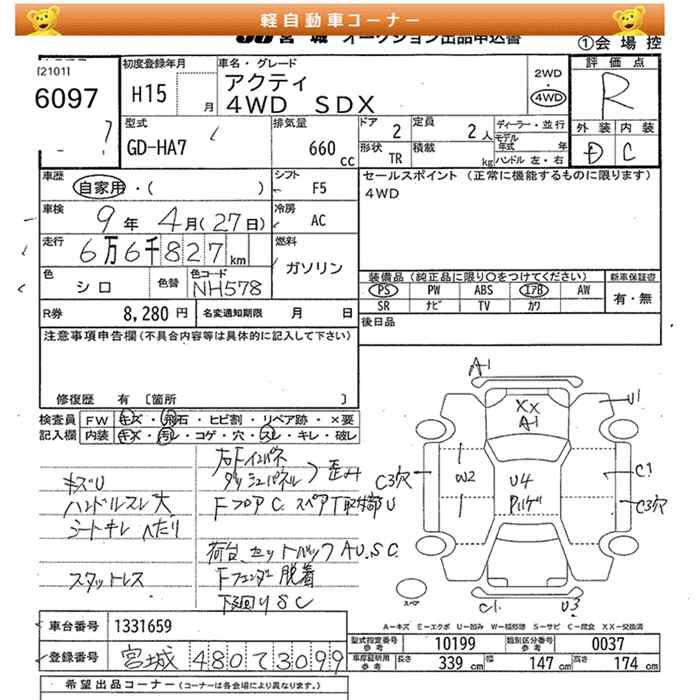 軽自動車コーナー
宮城 オークション出品申込書
①会場控
[2101]
6097
初度登録年月
H15 月
車名・グレード
アクティ
4WD SDX
2WD
・
4WD
評価点
R
外装 内装
D C
型式
GD-HA7
排気量
660 cc
ドア 2
定員 2人
形状 TR
積載 kg
ディーラー・並行
モデル年式 年
ハンドル 左・右
車歴
自家用・( )
シフト F5
車検
9年 4月(27日)
冷房 AC
走行
6万6千827km
燃料
ガソリン
色
シロ
色替
色コード
NH578
セールスポイント (正常に機能するものに限ります)
4WD
装備品(純正品に限り○をつけてください)
PS PW ABS エアB AW
SR ナビ TV カワ
新車保証書
有・無
R券 8,280 円
名変通知期限 月 日
後日品
注意事項申告欄(不具合内容等は具体的に記入して下さい)
修復歴 有 〔箇所 〕
検査員記入欄
FW キズ・飛石・ヒビ割・リペア跡・×要
内装 キズ・汚レ・コゲ・穴・スレ・キレ・破レ
キズU
ハンドルスレ大
シートキレ へたり
スタットレス
右Fインパネ
ダッシュパネル 歪み
FフロアC. スペアT取付部U
荷台、セットバックA.U.S.C.
Fフェンダー脱着
下廻りSC
A1
XX
A1
U1
C3穴
W2
U4
C1
C3穴
C1.
U3
スペア
A－キズ E－エクボ U－凹み W－補修跡 S－サビ C－腐食 XX－交換済
車台番号 1331659
登録番号 宮城 480て3099
型式指定番号 参考 10199
類別区分番号 参考 0037
車庫証明用 参考 長さ 339 cm 幅 147 cm 高さ 174 cm
希望出品コーナー(コーナーは各会場により異なります。)